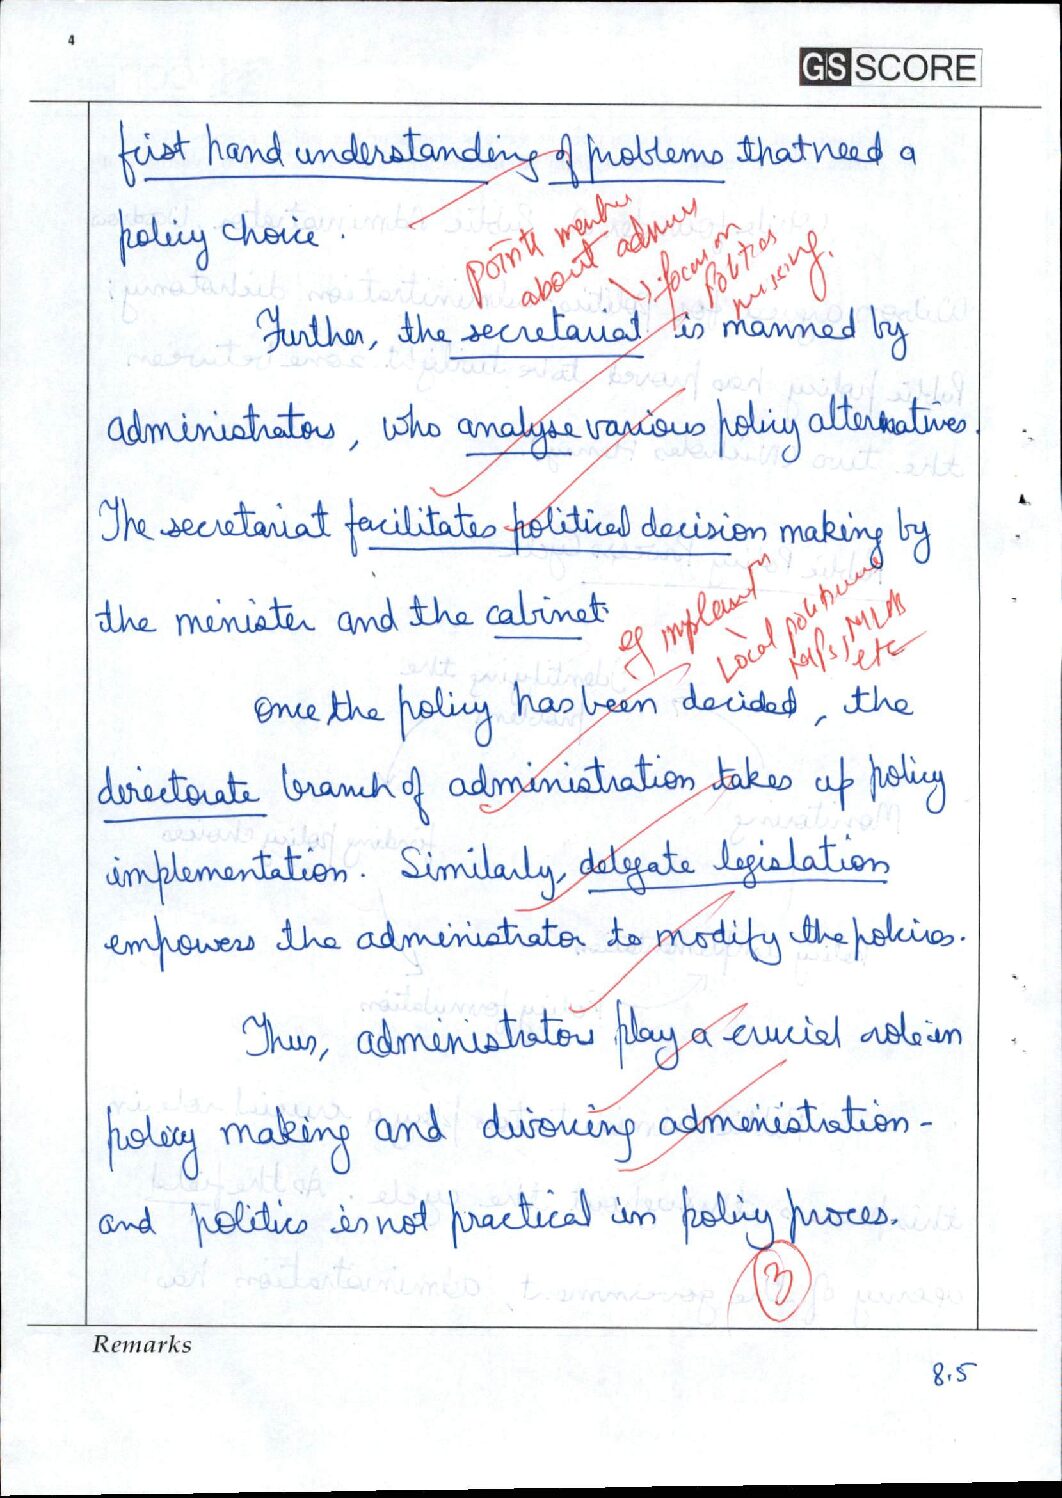 4
GS SCORE
first hand understanding of problems that need a
policy choice.
points
about
focus on
politics
missing.
Further, the secretariat is manned by
administrators, who analyse various policy alternatives.
The secretariat facilitates political decision making by
the minister and the cabinet.
Local
MPs, MLAs
etc
Once the policy has been decided, the
directorate branch of administration takes up policy
implementation. Similarly, delegate legislation
empowers the administrator to modify the policies.
Thus, administrators play a crucial role in
policy making and divorcing administration -
and politics is not practical in policy proces.
3
Remarks
8.5